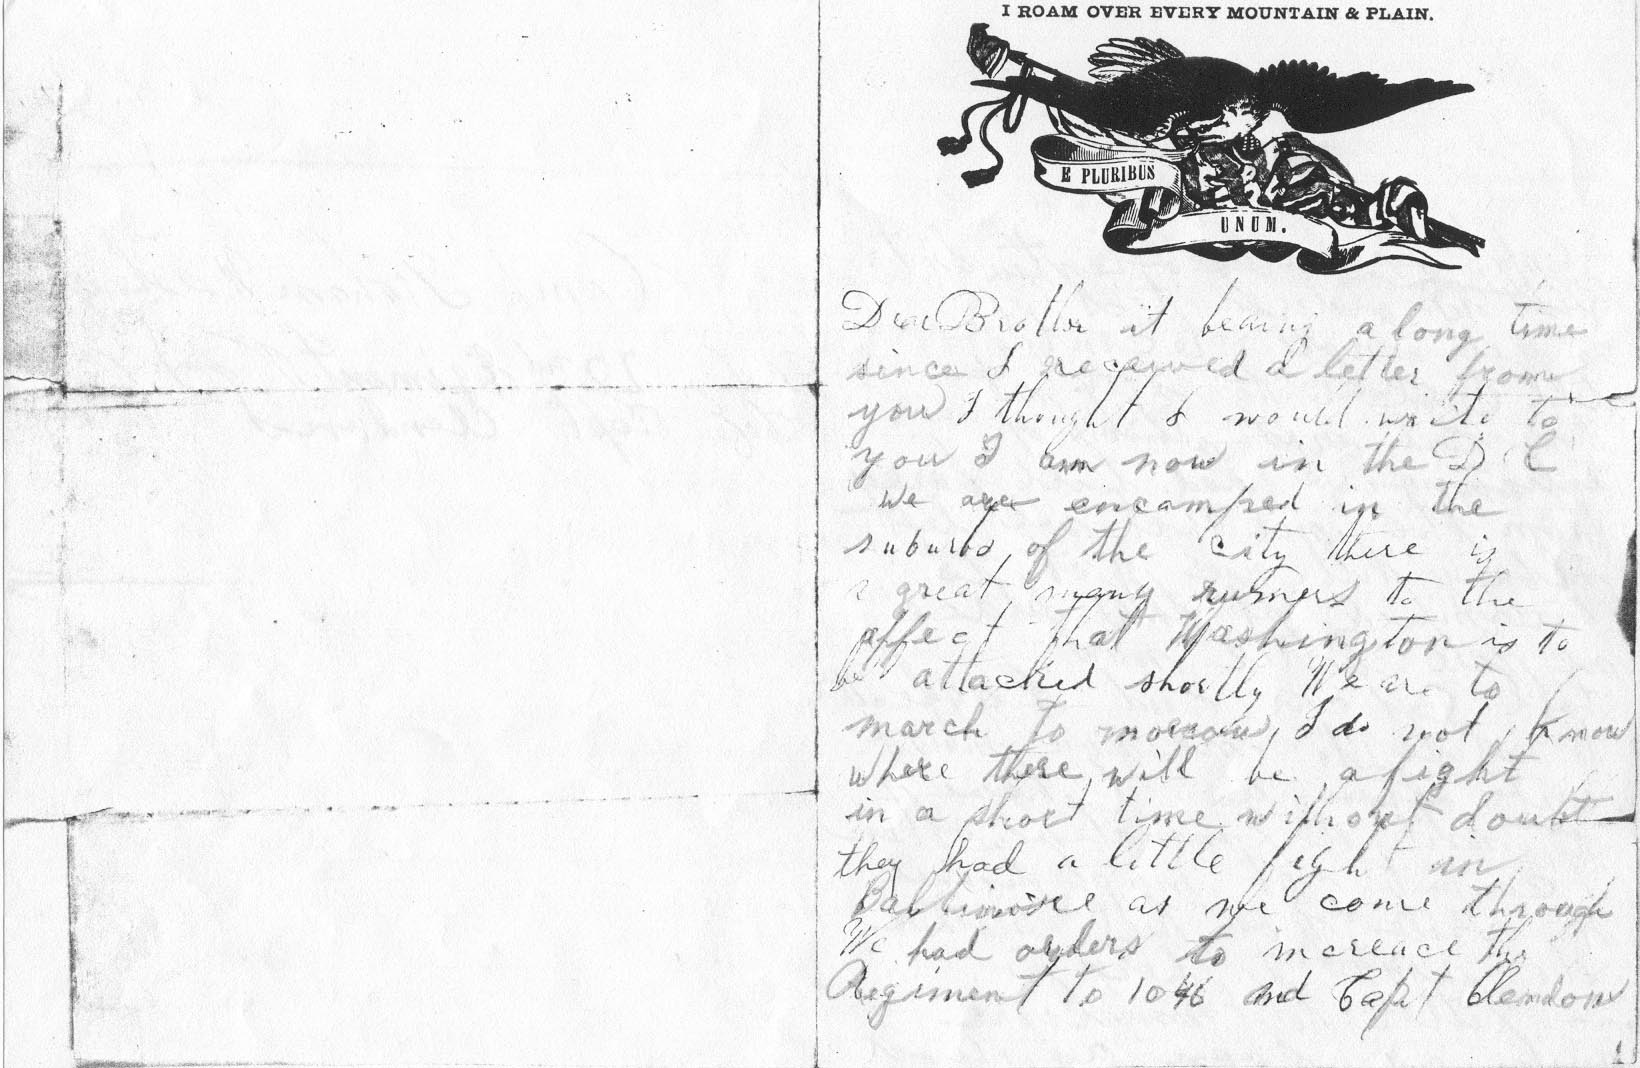 I ROAM OVER EVERY MOUNTAIN & PLAIN.
E PLURIBUS
UNUM.
Dear Brother it beaing a long time
since I received a letter from
you I thought I would write to
you I am now in the D C
we are encamped in the
suburbs of the city there is
a great many rumers to the
affect that Washington is to
be attacked shortly We are to
march to morrow, I do not know
where there will be a fight
in a short time without doubt
they had a little figh in
Baltimore as we come through
We had orders to increace the
Regiment to 1046 and Capt Clendon
1